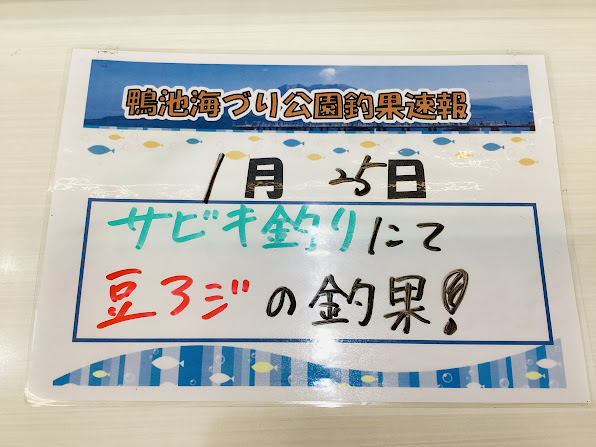 鴨池海づり公園釣果速報
1月 25日
サビキ釣りにて
豆アジの釣果!